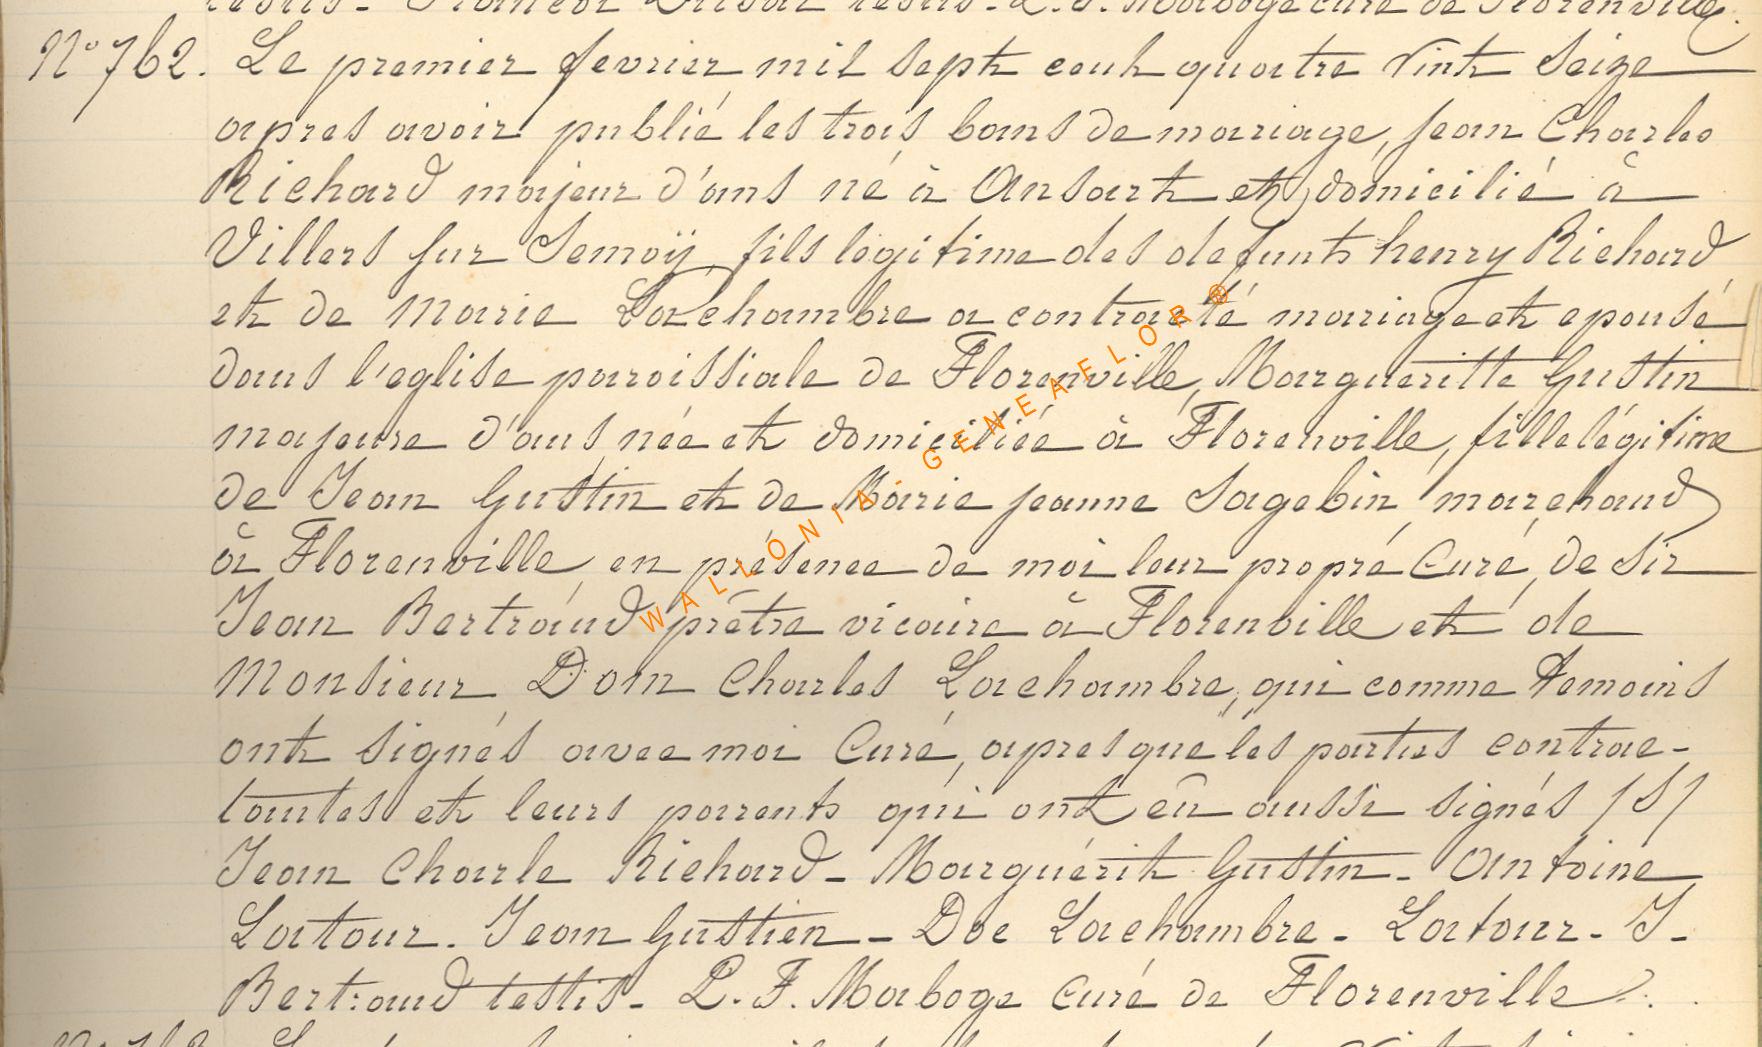 testis - François Dussar testis - L. F. Maboge curé de Florenville.
N° 762. Le premier fevrier mil sept cent quatre vint seize
apres avoir publié les trois bans de mariage, Jean Charles
Richard majeur d'ans né à Ansart et domicilié à
Villers sur Semoÿ, fils legitime des defunts henry Richard
et de Marie Lachambre a contracté mariage et epousé
dans l'eglise paroissiale de Florenville, Marguéritte Gustin
majeure d'ans, née et domiciliée à Florenville, fille légitime
de Jean Gustin et de Marie jeanne Sagebin, marchand
à Florenville, en présence de moi leur propré Curé, de Sir
Jean Bertrand prêtre vicaire à Florenville et de
Monsieur Dom Charles Lachambre, qui comme temoins
ont signés avec moi Curé, apres que les parties contrac-
tantes et leurs parrents qui ont eû aussi signés /S/
Jean Charle Richard - Marguérit Gustin - Antoine
Latour - Jean Gustien - Doc Lachambre - Latour - J -
Bertrand testis - L. F. Maboge Curé de Florenville.
WALLONIA - GENEAFLOR ®